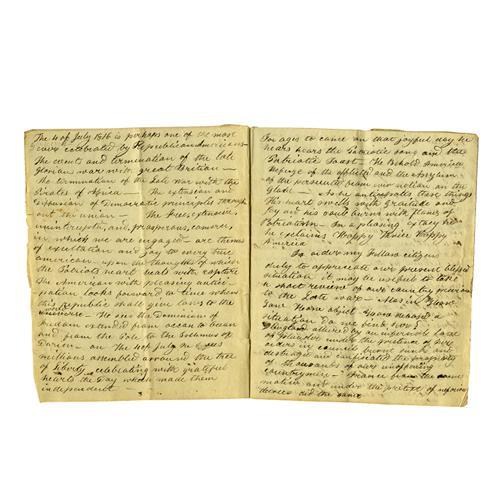 The 4 of July 1816 is perhaps one of the most
ever celebrated by Republican Americans
The events and termination of the late
Glorious war with great Britian —
the termination of the late war with the
Pirates of Africa — The extension and
diffusion of Democratic principles through
out the union — The free, extensive,
uninterrupted, and, prosperous, comerce,
in which we are engaged — are themes
of exultation and Joy to every true
american. upon the thoughts of which
the Patriots heart beats with rapture
The American with pleasing antici-
pation looks forward to time when
this republic shall give laws to the
universe — He sees the Dominion of
extended from ocean to ocean
and from the Pole to the Isthmus of
Darien — on the 4 of July he sees
millions assembled around the tree
of liberty, celebrating with grateful
hearts the Day which made them
independent
For ages to come on that joyful day he
hears the Patriotic song and the
Patriotic Toast — He Beholds America
Refuge of the afflicted and the Assylum
of the persecuted from every nation on the
Globe — As he anticipates these things
His heart swells with gratitude and
Joy and his soul burns with flames of
Patriotism — In a pleasing extacy
he exclaims Happy Thrice Happy
America
In order my fellow citizens
duly to appreciate our present blessed
situation it may be usefull to take
a short review of our country previous
to the Late war —
situation Do we find her
England allured by an insatiable
under the pretence of
orders in council
destroyed and confiscated the property
of thousands of our unoffending
Countrymen — France from the same
motive and under the pretext of
decrees did the same